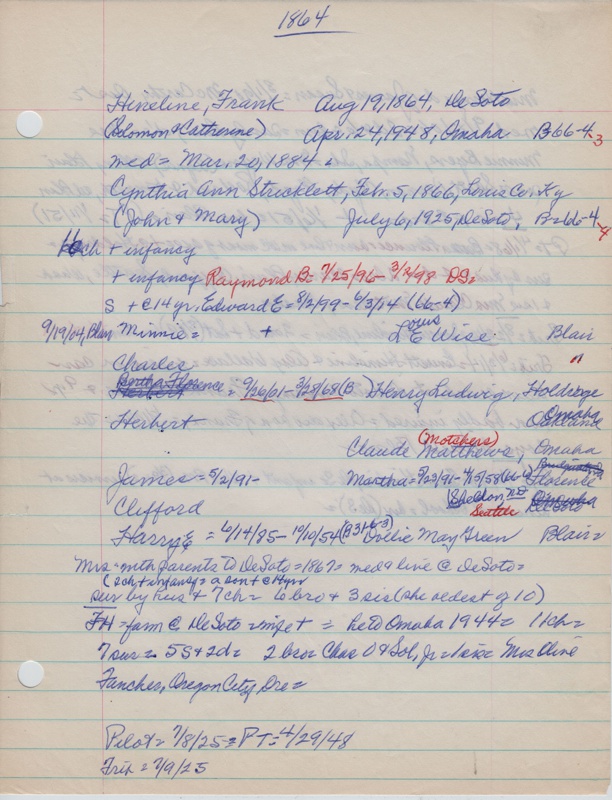 1864
Hineline, Frank Aug 19, 1864, DeSoto
(Solomon & Catherine) Apr. 24, 1948, Omaha B66-4-3
med = Mar. 20, 1884 =
Cynthia Ann Stricklett, Feb. 5, 1866, Lewis Co. Ky
(John & Mary) July 6, 1925, DeSoto, B=66-4-4
ch + infancy
+ infancy Raymond B= 7/25/96 - 3/2/98 DS=
S + @ 14 yr. Edward E = 8/2/99 - 6/3/14 (66-4)
9/19/04, Blair Minnie = + Louis E Wise Blair
Charles "
Bertha Florence = 9/26/01 - 3/28/68 (B ) Henry Ludwig, Holdrege
Herbert Omaha Oakland
(Motchers)
Claude Matthews, Omaha
James = 5/2/91- Martha = Florence
Clifford Sheldon, ND
Seattle DeSoto
Harry E = 6/14/85 - 10/10/54 (B ) Dollie May Green Blair =
Mrs = with parents to DeSoto = 1867 = med & live @ DeSoto =
(2 ch + infancy = a son + @ 14 yr
sur by hus + 7 ch = 6 bro + 3 sis (she oldest of 10)
FH = farm @ DeSoto = wife + = he to Omaha 1944 = 11 ch =
7 sur = 5 S & 2 d = 2 bro = Chas O & Sol, Jr = 1 sis = Mrs Oline
Fancher, Oregon City, Ore =
Pilot = 7/8/25 = PT = 4/29/48
Trib = 7/9/25